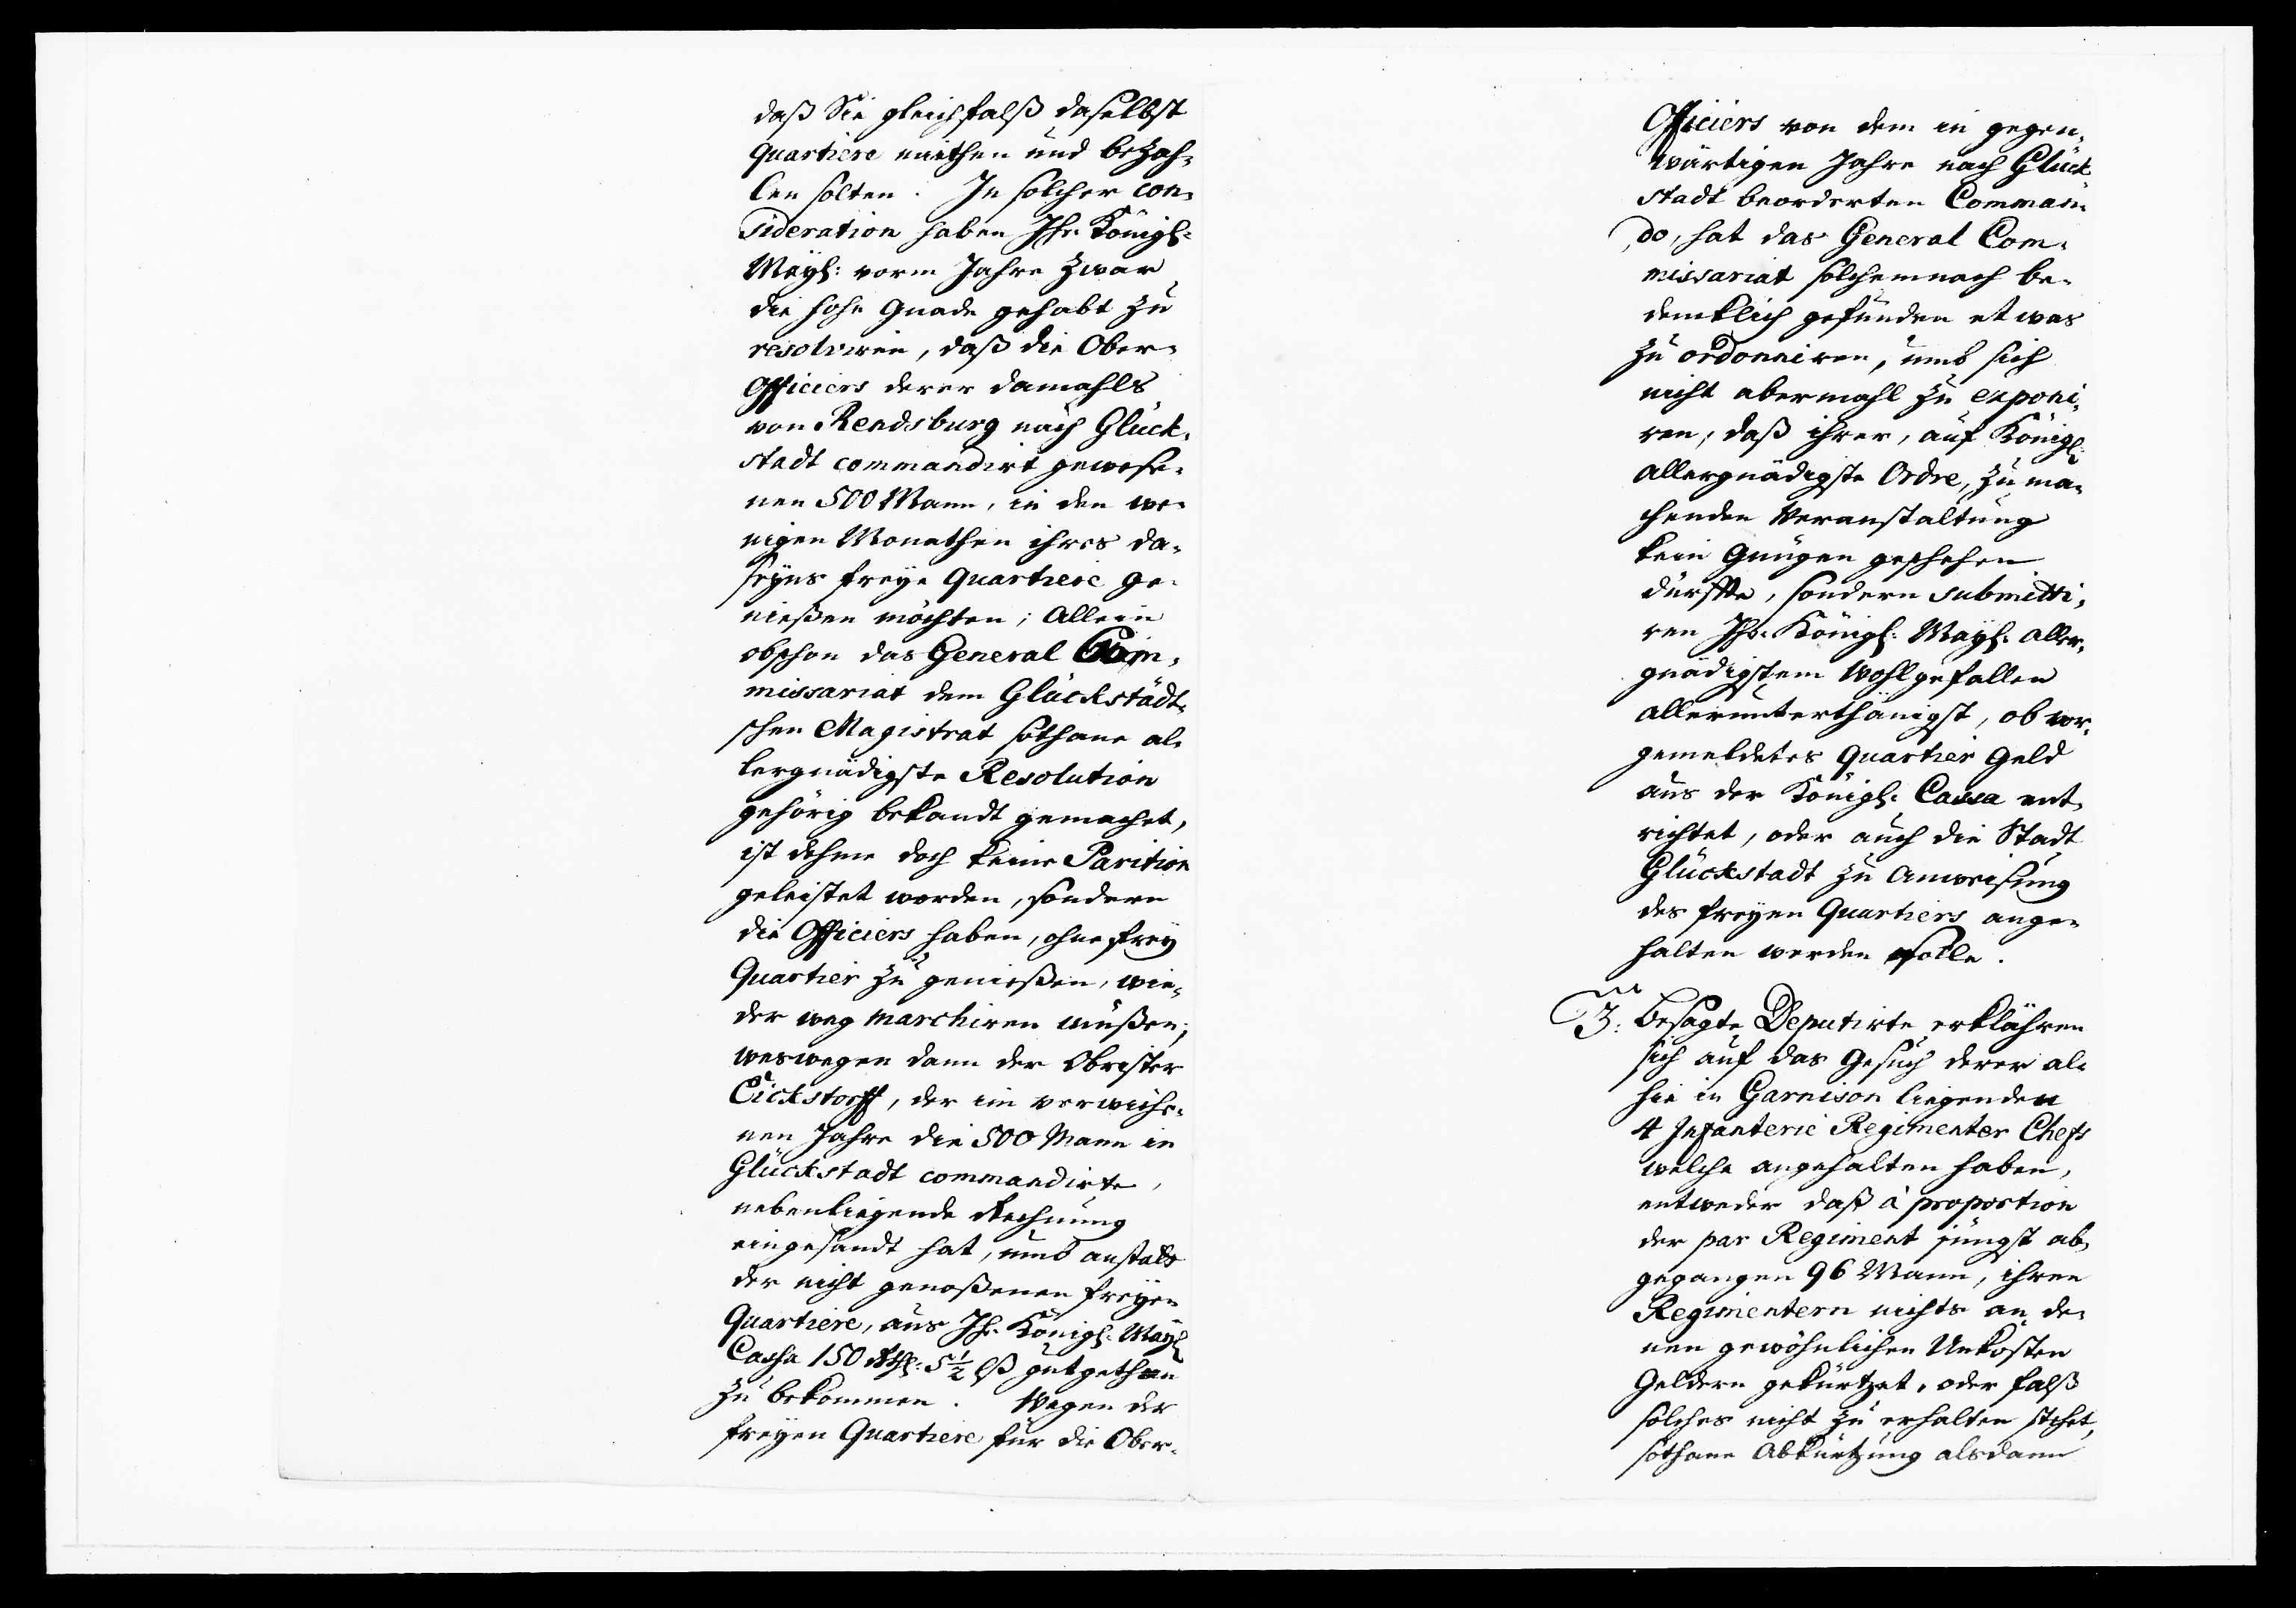 daß Sie gleichfalß daselbst
Quartiere miethen und bezah-
len solten. In solcher con-
sideration haben Ihr. Königl:
Mayt: vorm Jahre zwar
die hohe Gnade gehabt zu
resolviren, daß die Ober-
Officiers derer damahls
von Rendsburg nach Glück-
stadt commandirt gewese-
nen 500 Mann, in den we-
nigen Monathen ihres da-
seyns freye Quartiere ge-
nießen möchten; Allein
obschon das General Com-
missariat dem Glückstädt-
schen Magistrat sothane al-
lergnädigste Resolution
gehörig bekandt gemachet,
ist dehme doch keine Parition
geleistet worden, sondern
die Officiers haben, ohne frey
Quartier zu genießen, wie-
der weg marchiren müßen;
weswegen dann der Obrister
Eickstorff, der im verwiche-
nen Jahre die 500 Mann in
Glückstadt commandirte,
nebenliegende Rechnung
eingesandt hat, umb anstatt
der nicht genoßenen freyen
Quartiere, aus Ihr. Königl: Mayt:
Cassa 150 Rthl: 5½ lß gutgethan
zu bekommen. Wegen der
freyen Quartiere für die Ober-
Officiers von dem in gegen-
wärtigen Jahre nach Glück
stadt beorderten Comman-
do, hat das General Com-
missariat solchemnach be-
dencklich gefunden etwas
zu ordonniren, umb sich
nicht abermahl zu exponi-
ren, daß ihrer, auf Königl:
allergnädigste Ordre, zu ma-
chenden Veranstaltung
kein Gnügen geschehen
dürffte, sondern submitti-
ren Ihr. Königl: Mayt: aller-
gnädigstem Wohlgefallen
allerunterthänigst, ob vor-
gemeldetes Quartier Geld
aus der Königl: Cassa ent-
richtet, oder auch die Stadt
Glückstadt zu Anweisung
des freyen Quartiers ange-
halten werden solle.
3. Besagte Deputirte erklähren
sich auf das Gesuch derer al-
hie in Garnison liegenden
4 Infanterie Regimenter Chefs
welche angehalten haben,
entweder daß à proportion
der par Regiment jüngst ab-
gegangen 96 Mann, ihren
Regimentern nichts an de-
nen gewöhnlichen Unkosten
Geldern gekürtzet, oder falß
solches nicht zu erhalten stehet,
sothane Abkürtzung alsdann